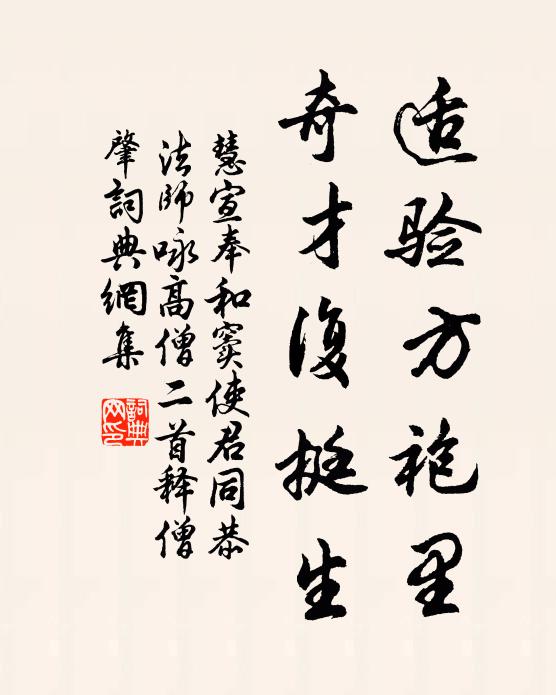 适验方袍里
奇才復挺生
慧宣奉和窦使君同恭
法师咏高僧二首释僧
肇詞典網集
詞典網印